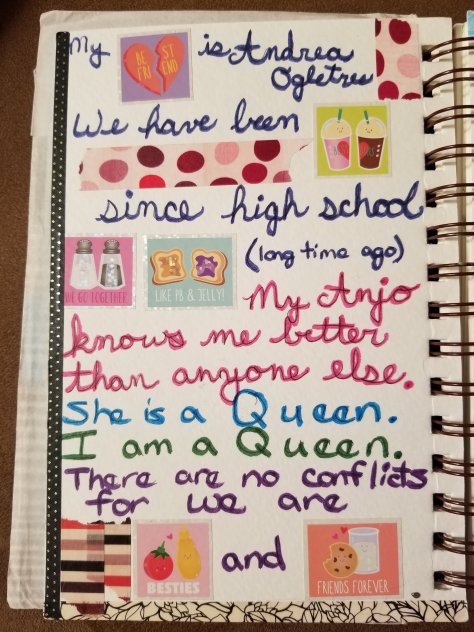 My BE ST is Andrea
FRI END Ogletree
We have been
since high school
WE GO TOGETHER LIKE PB & JELLY! (long time ago)
My Anjo
knows me better
than anyone else.
She is a Queen.
I am a Queen.
There are no conflicts
for we are
BESTIES and FRIENDS FOREVER